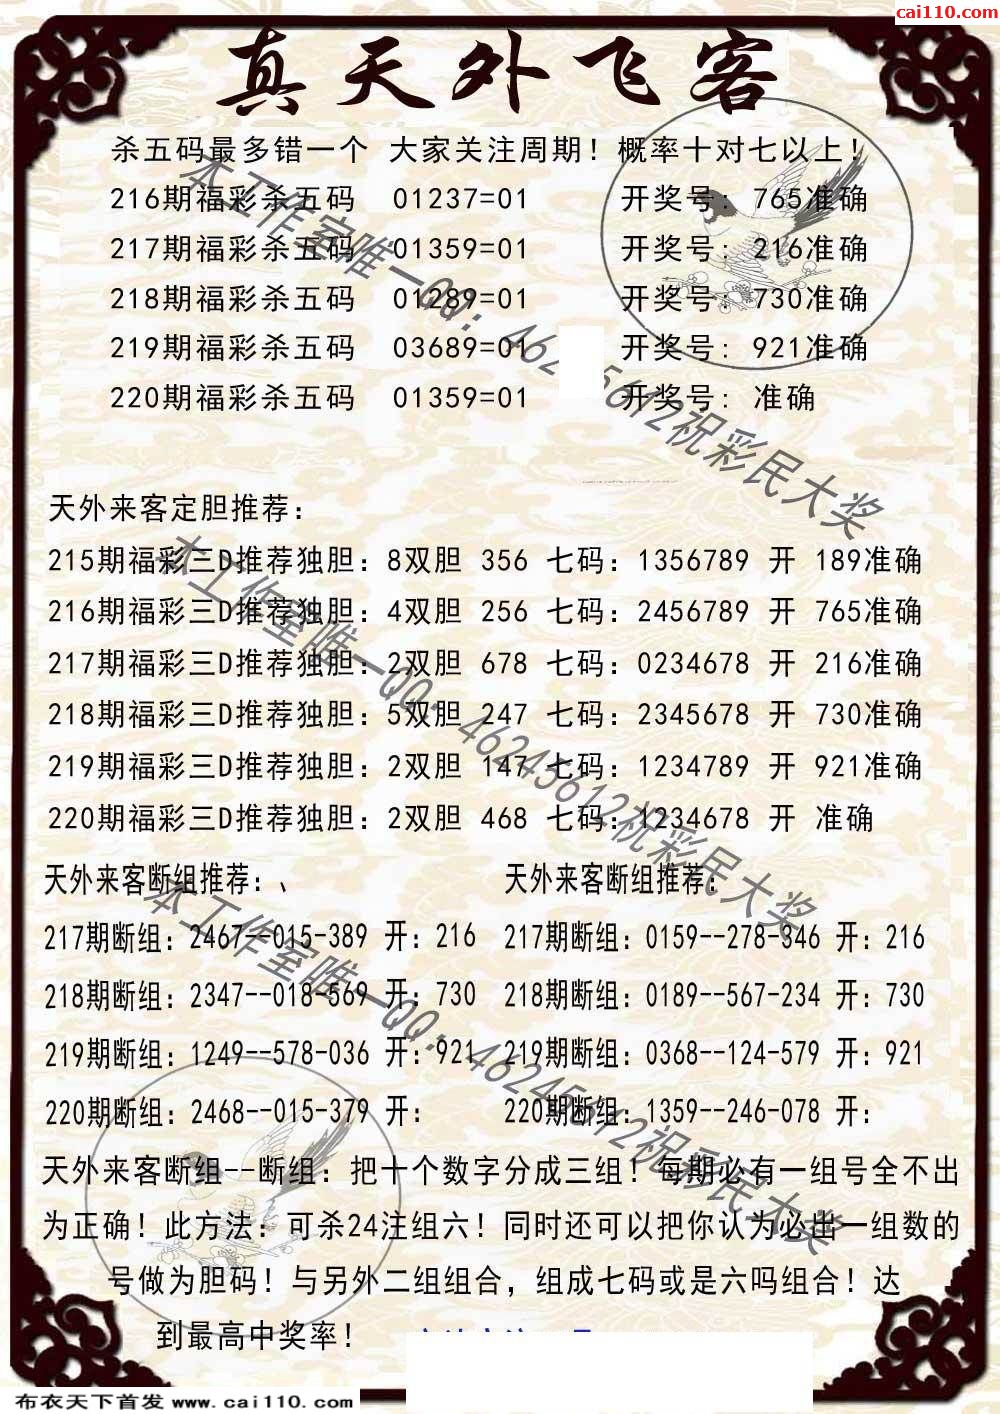 cai110.com
真天外飞客
杀五码最多错一个 大家关注周期！概率十对七以上！
216期福彩杀五码 01237=01 开奖号：765准确
217期福彩杀五码 01359=01 开奖号：216准确
218期福彩杀五码 01289=01 开奖号：730准确
219期福彩杀五码 03689=01 开奖号：921准确
220期福彩杀五码 01359=01 开奖号：准确
本工作室唯一QQ：46245612祝彩民大奖
天外来客定胆推荐：
215期福彩三D推荐独胆：8双胆 356 七码：1356789 开 189准确
216期福彩三D推荐独胆：4双胆 256 七码：2456789 开 765准确
217期福彩三D推荐独胆：2双胆 678 七码：0234678 开 216准确
218期福彩三D推荐独胆：5双胆 247 七码：2345678 开 730准确
219期福彩三D推荐独胆：2双胆 147 七码：1234789 开 921准确
220期福彩三D推荐独胆：2双胆 468 七码：1234678 开 准确
本工作室唯一QQ：46245612祝彩民大奖
天外来客断组推荐：、 天外来客断组推荐：
217期断组：2467--015-389 开：216 217期断组：0159--278-346 开：216
218期断组：2347--018-569 开：730 218期断组：0189--567-234 开：730
219期断组：1249--578-036 开：921 219期断组：0368--124-579 开：921
220期断组：2468--015-379 开： 220期断组：1359--246-078 开：
本工作室唯一QQ：46245612祝彩民大奖
天外来客断组--断组：把十个数字分成三组！每期必有一组号全不出
为正确！此方法：可杀24注组六！同时还可以把你认为必出一组数的
号做为胆码！与另外二组组合，组成七码或是六吗组合！达
到最高中奖率！
布衣天下首发 www.cai110.com